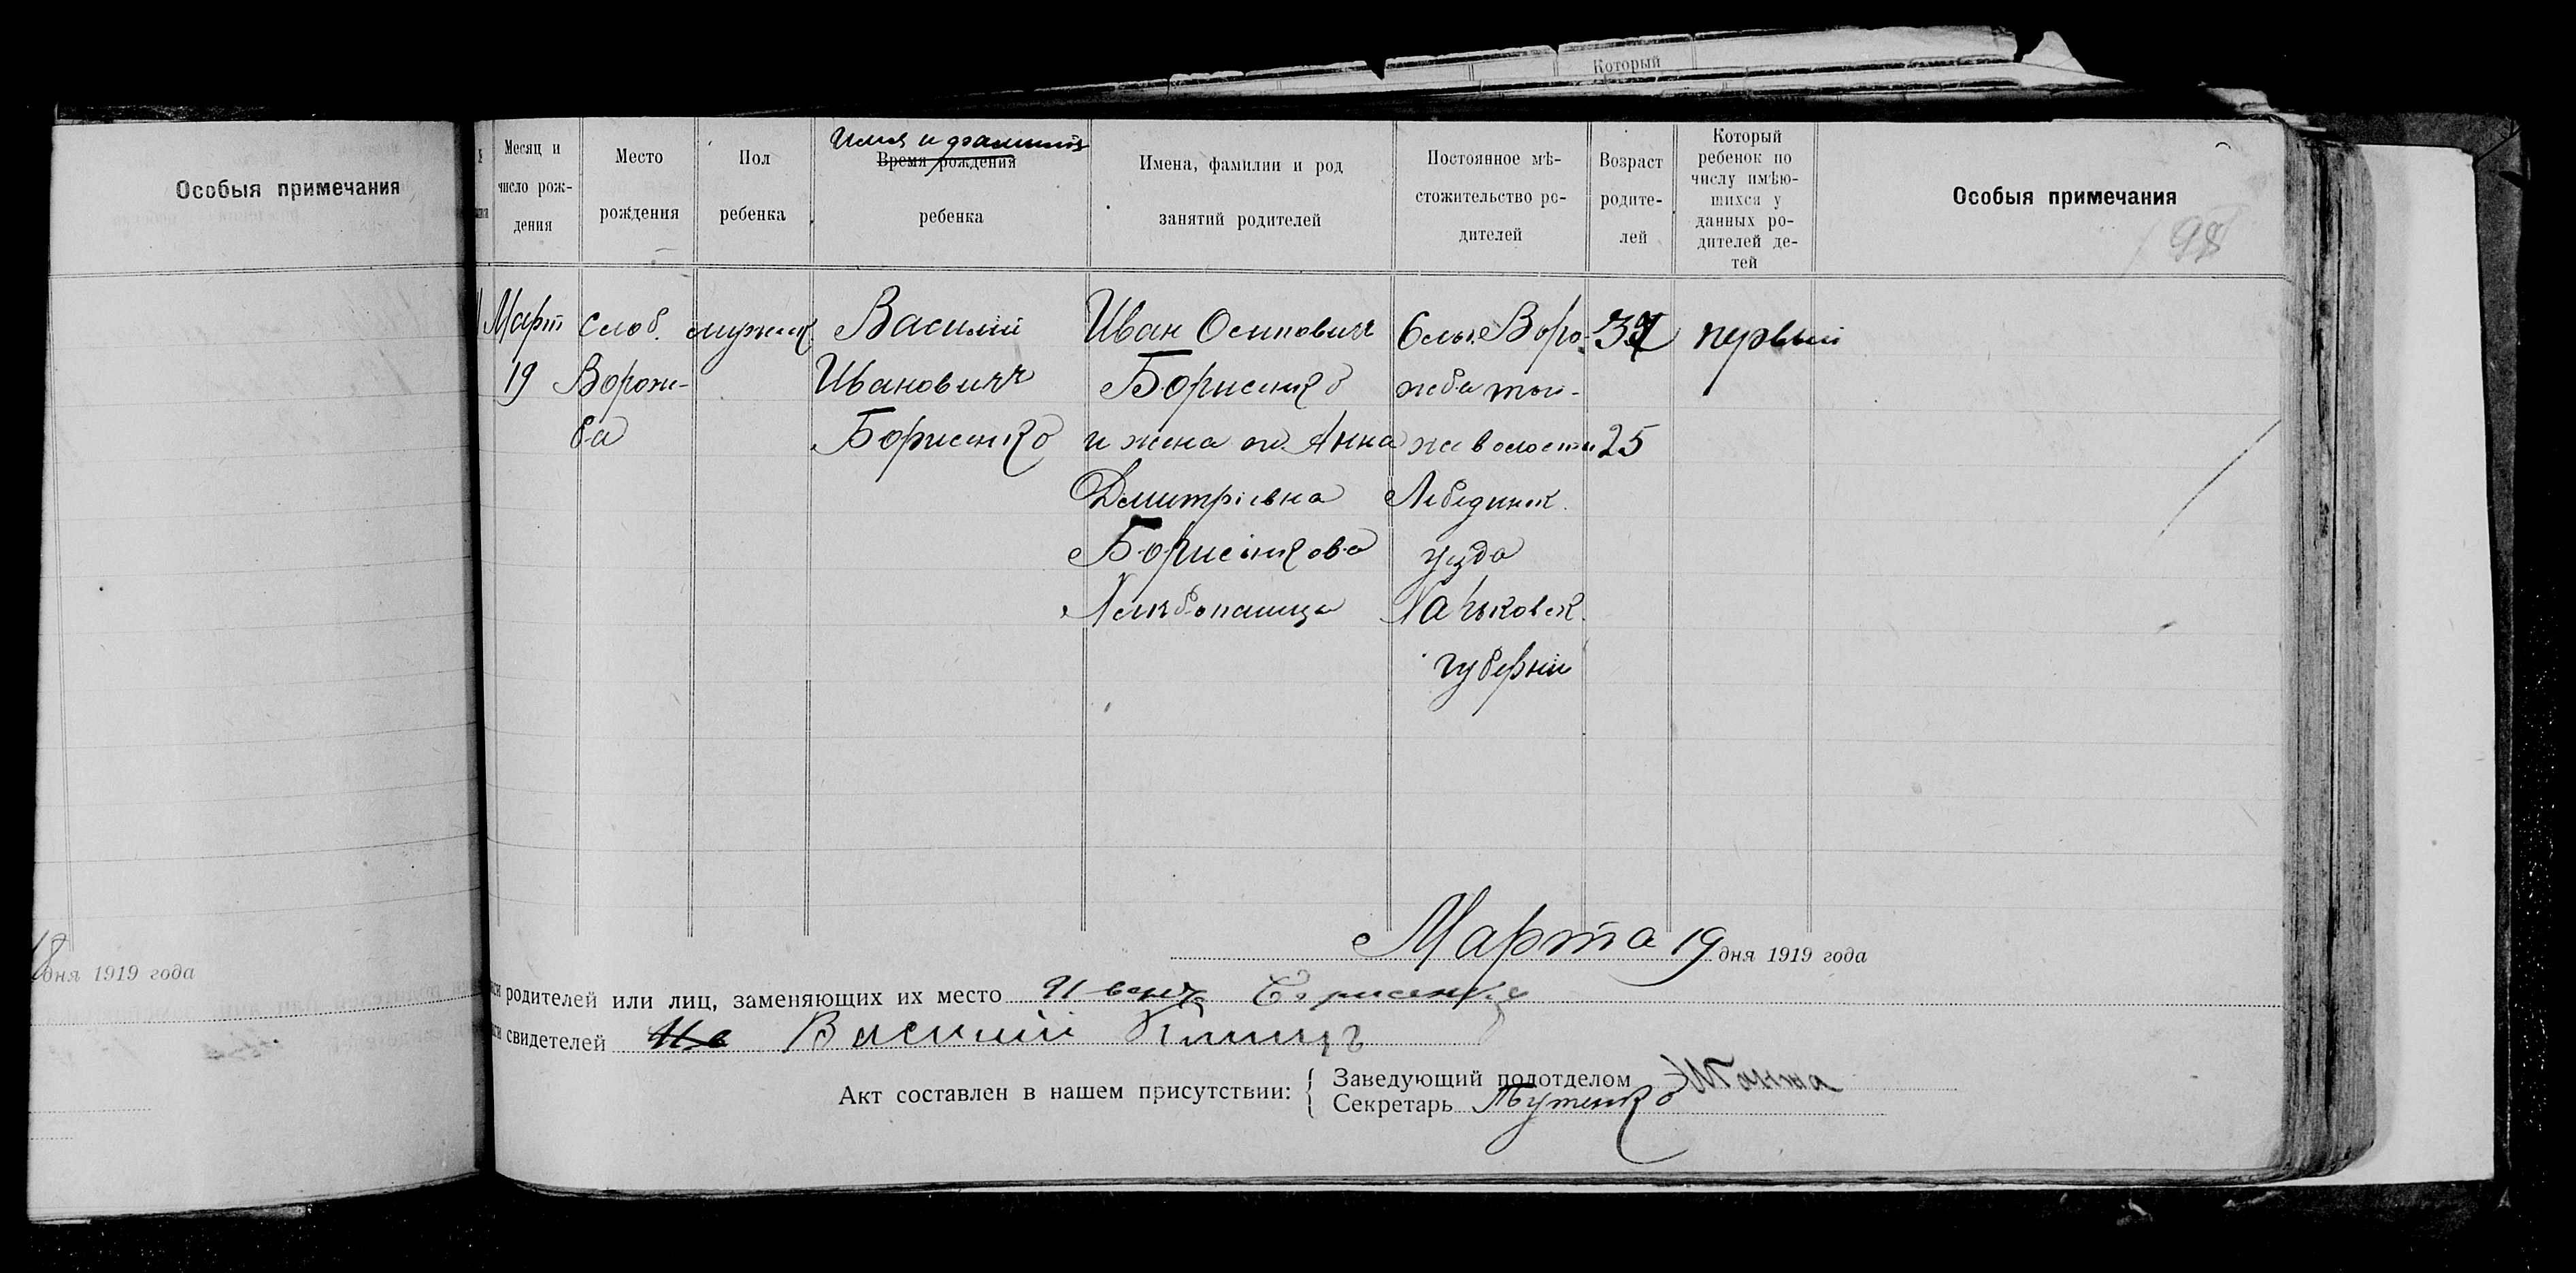 Который
Особыя примечания
Месяц и число рождения
Место рождения
Пол ребенка
Имя и фамилия
Время рождения
ребенка
Имена, фамилии и род занятий родителей
Постоянное мѣстожительство родителей
Возраст родителей
Который ребенок по числу имѣющихся у данных родителей детей
Особыя примечания
98
Март Слоб. мужск. Василий Иван Осипович Воро- первый
19 Ворож- Иванович Борисенко жба той-
ба Борисенко и жена его Анна же волости 25
Дмитріевна Лебединск.
Борисенкова уезда
Хлебопашцы Харьковск.
губернии
Марта 19 дня 1919 года
18 дня 1919 года
родителей или лиц, заменяющих их место Иван Борисенко
свидетелей Ив Василий
Акт составлен в нашем присутствии:
Заведующий подотделом
Секретарь Бутенко